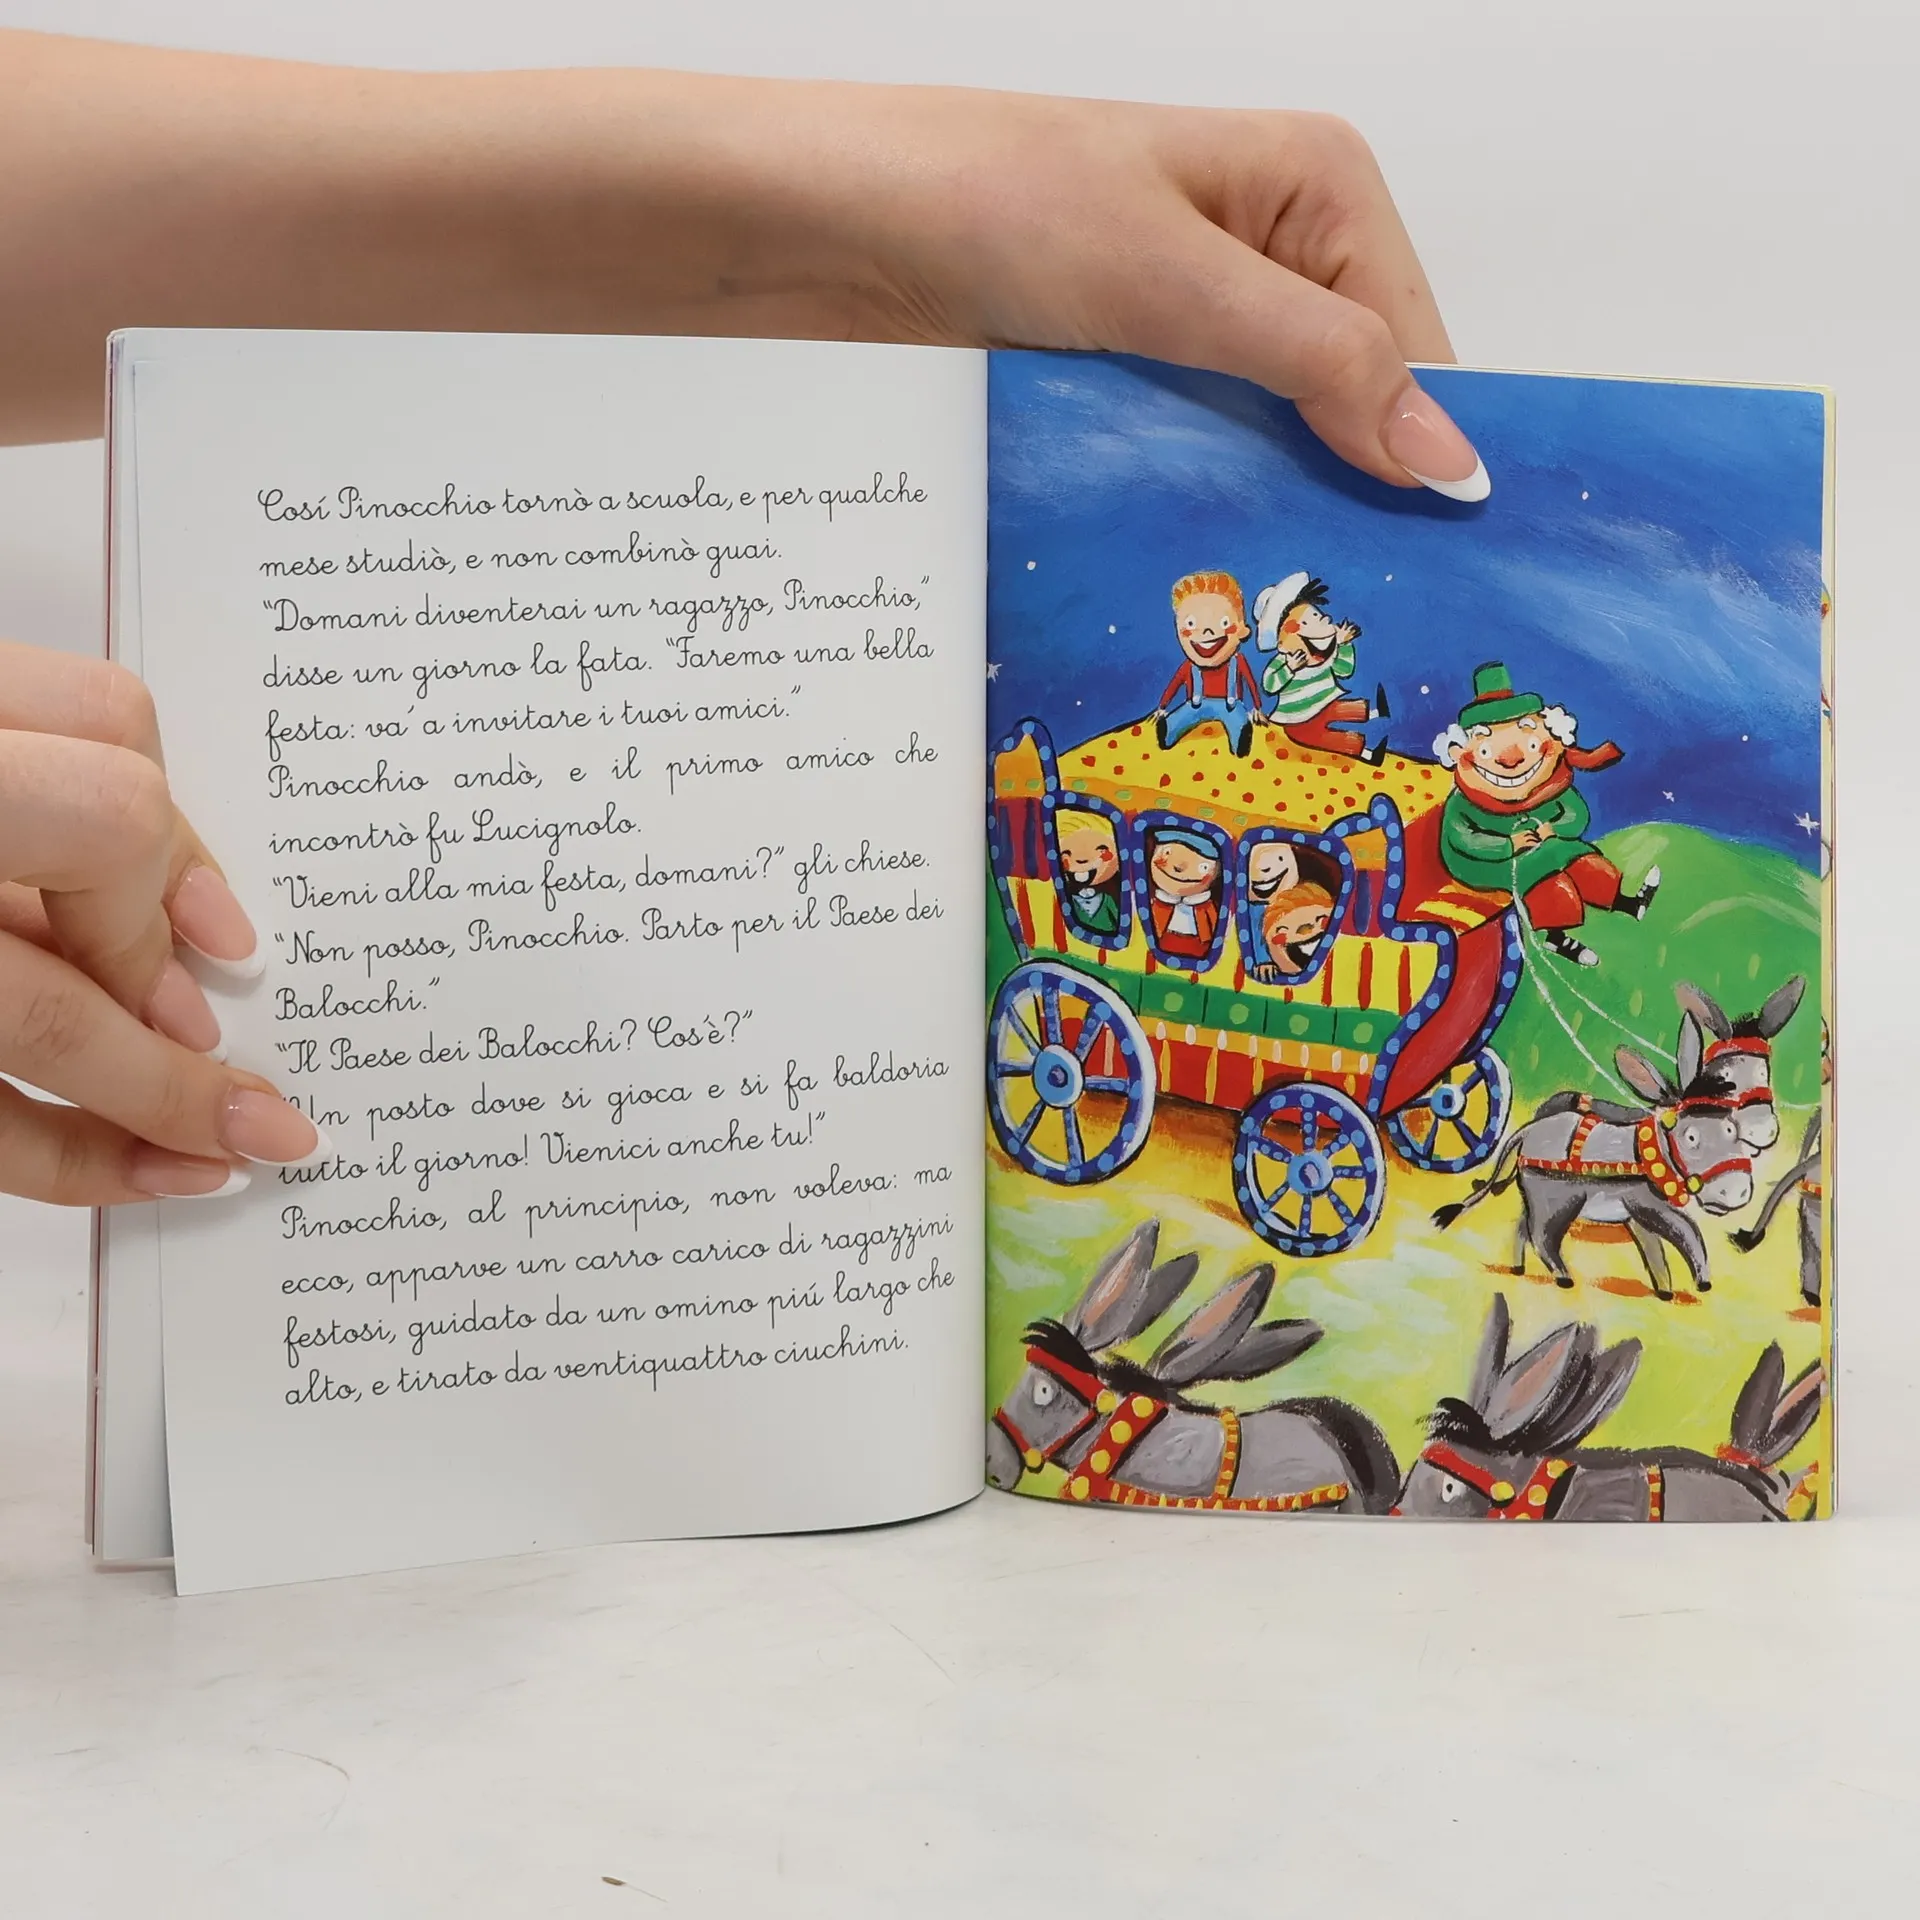 Cosí Pinocchio tornò a scuola, e per qualche
mese studiò, e non combinò guai.
"Domani diventerai un ragazzo, Pinocchio,"
disse un giorno la fata. "Faremo una bella
festa: va' a invitare i tuoi amici."
Pinocchio andò, e il primo amico che
incontrò fu Lucignolo.
"Vieni alla mia festa, domani?" gli chiese.
"Non posso, Pinocchio. Parto per il Paese dei
Balocchi."
"Il Paese dei Balocchi? Cos'è?"
"Un posto dove si gioca e si fa baldoria
tutto il giorno! Vienici anche tu!"
Pinocchio, al principio, non voleva: ma
ecco, apparve un carro carico di ragazzini
festosi, guidato da un omino piú largo che
alto, e tirato da ventiquattro ciuchini.